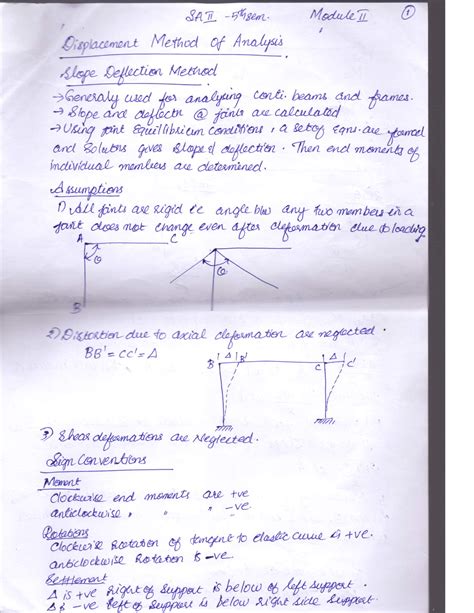 SA II - 5th sem. Module II 1
Displacement Method Of Analysis
Slope Deflection Method
→ Generally used for analysing conti. beams and frames.
→ Slope and deflectn @ joints are calculated
→ Using joint Equilibrium conditions, a set of Eqns. are formed
and solutns gives slope & deflection. Then end moments of
individual members are determined.
Assumptions
1) All joints are rigid i.e angle b/w any two members in a
joint does not change even after deformation due to loading
A C
θ θ
B
2) Distortion due to axial deformation are neglected.
BB' = CC' = Δ
B Δ B' C Δ C'
3) Shear deformations are Neglected.
Sign Conventions
Moment
Clockwise end moments are +ve
anticlockwise " " " -ve
Rotations
Clockwise Rotation of tangent to elastic curve is +ve.
anticlockwise Rotation is -ve.
Settlement
Δ is +ve Right of support is below of left support.
Δ is -ve left of support is below right side support.